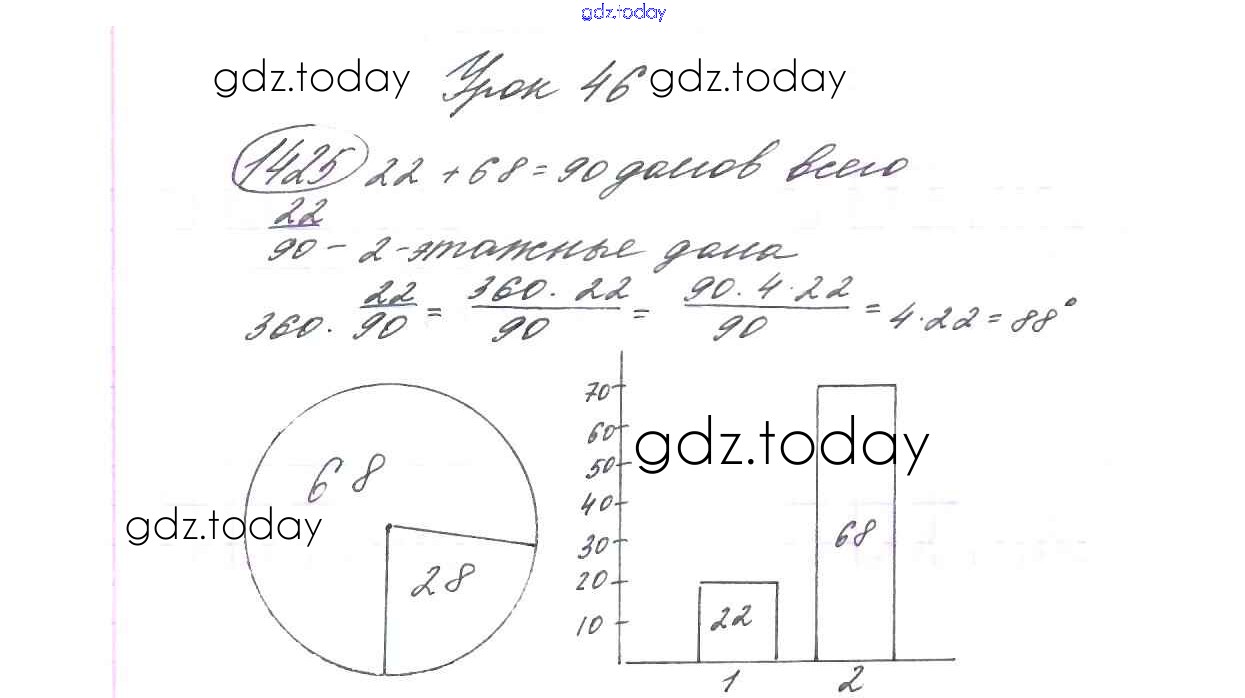 gdz.today
gdz.today Урок 46 gdz.today
1425 22 + 68 = 90 домов всего
22/90 - 2-этажные дома
360 · 22/90 = 360 · 22/90 = 90 · 4 · 22/90 = 4 · 22 = 88°
68
28
gdz.today
70
60
50
40
30
20
10
gdz.today
22
68
1 2